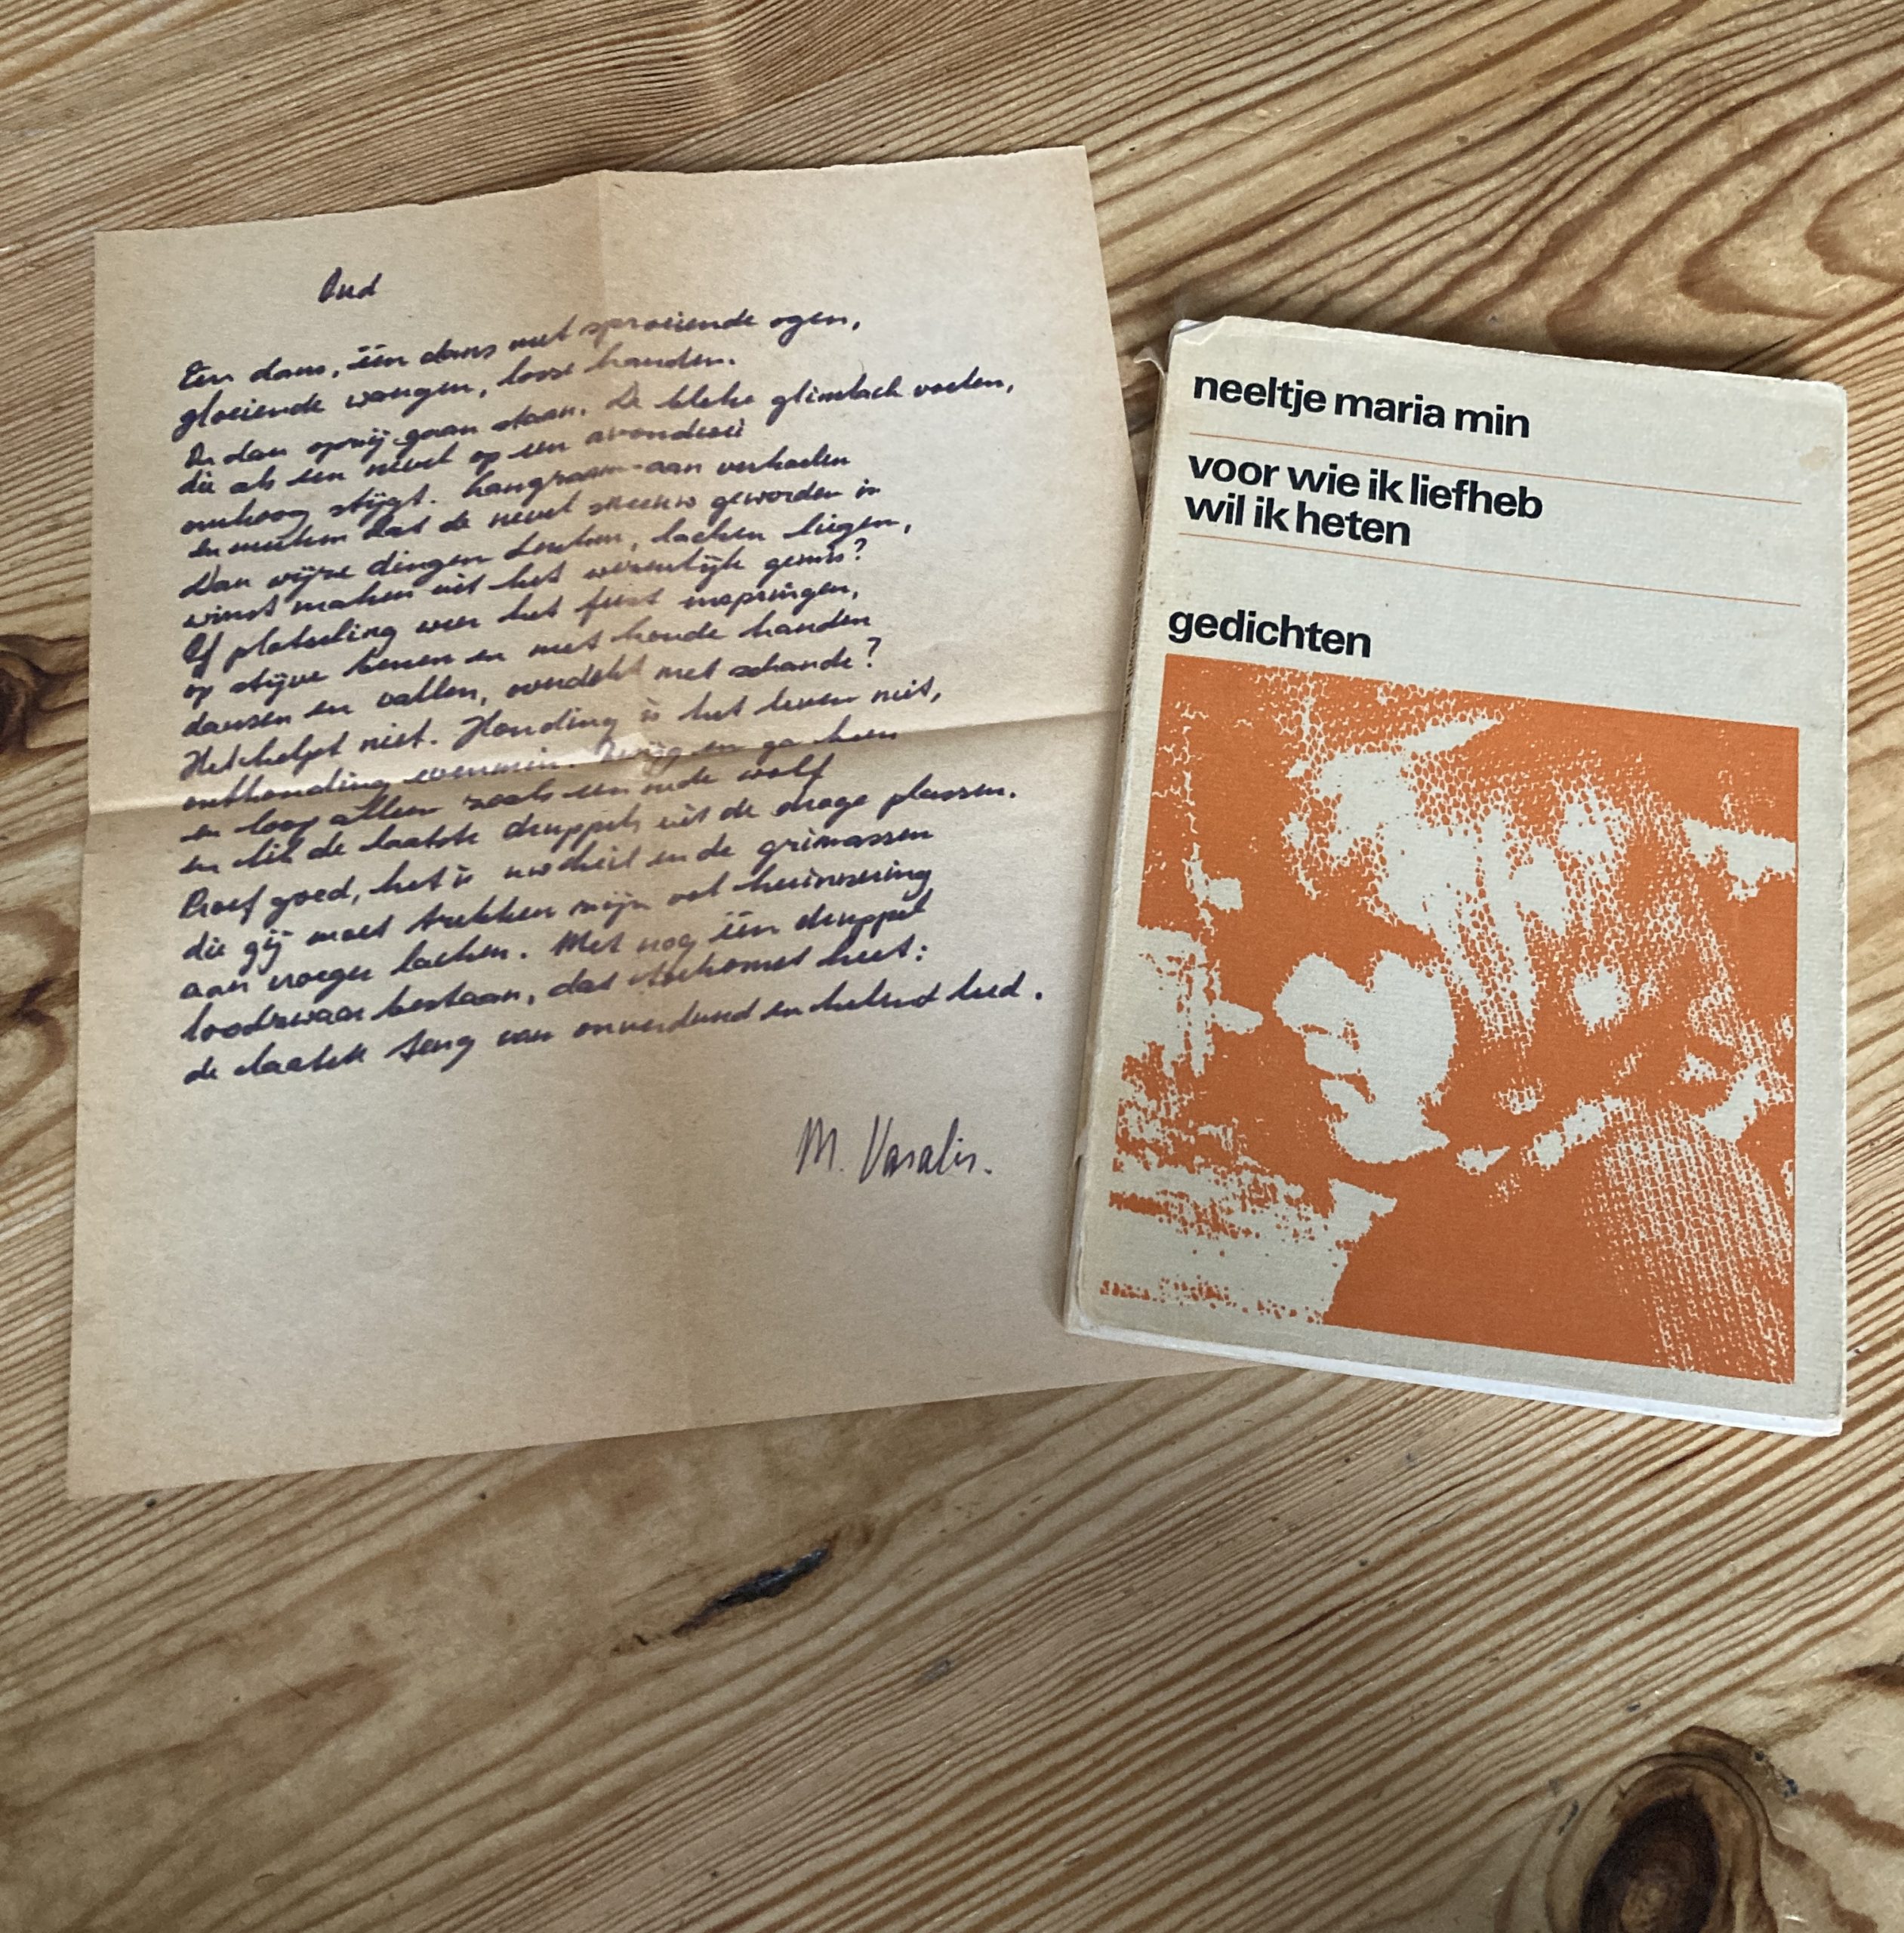 Oud
Een dans, één dans met sproeiende ogen,
gloeiende wangen, losse handen.
En dan opzij gaan staan. De bleke glimlach voelen,
die als een nevel op een avondwei
omhoog stijgt. Langzaam-aan verkoelen
en merken dat de nevel sneeuw geworden is
Dan wijze dingen denken, lachen liegen,
winst maken uit het wezenlijk gemis?
Of plotseling weer het feest inspringen,
op stijve benen en met koude handen
dansen en vallen, overdekt met schande?
Het helpt niet. Houding is het leven niet,
onthouding evenmin. Zwijg en ga heen
en loop alleen zoals een oude wolf
en lik de laatste druppels uit de droge plassen.
Proef goed, het is uw deel en de grimassen
die gij moet trekken zijn vol herinnering
aan vroeger lachen. Met nog één druppel
loodzwaar bestaan, dat toekomst heet:
de laatste teug van onverdund en helend leed.
M. Vasalis.
neeltje maria min
voor wie ik liefheb
wil ik heten
gedichten